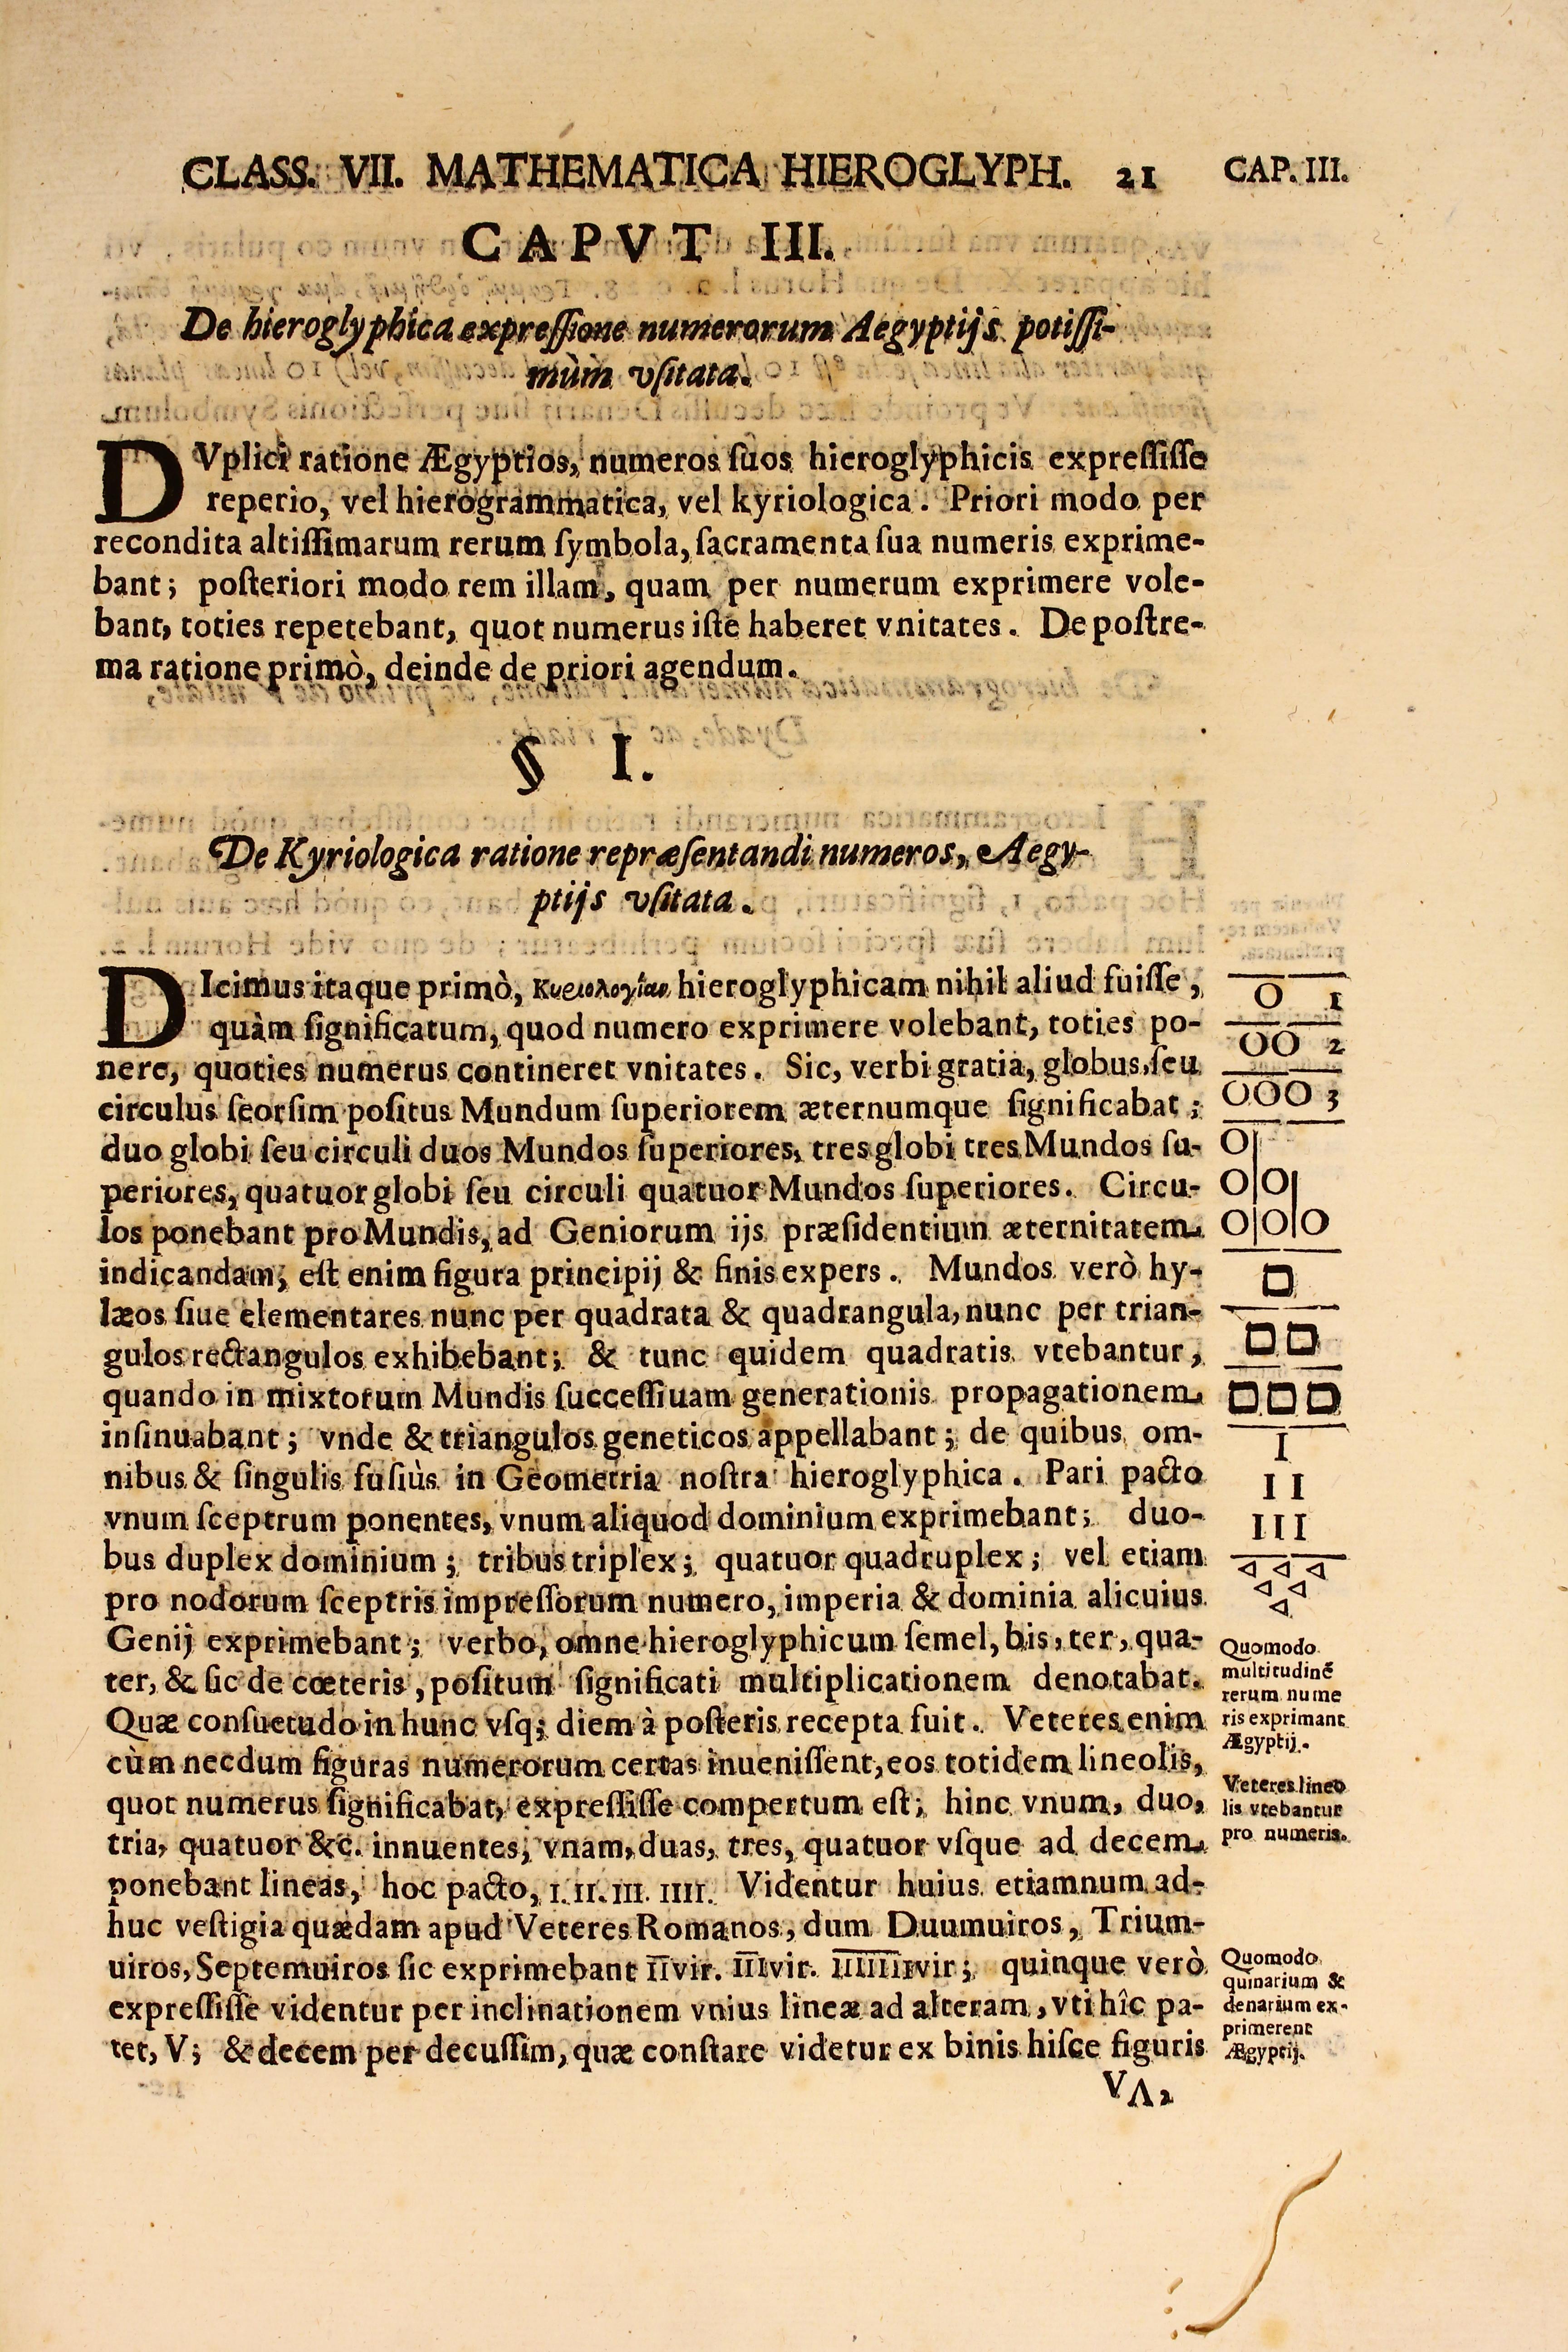 CLASS. VII. MATHEMATICA HIEROGLYPH. 21 CAP. III.
CAPVT III.
De hieroglyphica expreſſione numerorum Aegyptijs potiſſi-
mùm vſitata.
DVplici ratione Ægyptios, numeros ſuos hieroglyphicis expreſſiſſe
reperio, vel hierogrammatica, vel kyriologica. Priori modo per
recondita altiſſimarum rerum ſymbola, ſacramenta ſua numeris exprime-
bant; poſteriori modo rem illam, quam per numerum exprimere vole-
bant, toties repetebant, quot numerus iſte haberet vnitates. De poſtre-
ma ratione primò, deinde de priori agendum.
§ I.
De Kyriologica ratione repræſentandi numeros, Aegy-
ptijs vſitata.
DIcimus itaque primò, κυριολογίαν hieroglyphicam nihil aliud fuiſſe,
quàm ſignificatum, quod numero exprimere volebant, toties po-
nere, quoties numerus contineret vnitates. Sic, verbi gratia, globus ſeu
circulus ſeorſim poſitus Mundum ſuperiorem æternumque ſignificabat;
duo globi ſeu circuli duos Mundos ſuperiores, tres globi tres Mundos ſu-
periores, quatuor globi ſeu circuli quatuor Mundos ſuperiores. Circu-
los ponebant pro Mundis, ad Geniorum ijs præſidentium æternitatem
indicandam; eſt enim figura principij & finis expers. Mundos verò hy-
læos ſiue elementares nunc per quadrata & quadrangula, nunc per trian-
gulos rectangulos exhibebant; & tunc quidem quadratis vtebantur,
quando in mixtorum Mundis ſucceſſiuam generationis propagationem
inſinuabant; vnde & triangulos geneticos appellabant; de quibus om-
nibus & ſingulis fuſiùs in Geometria noſtra hieroglyphica. Pari pacto
vnum ſceptrum ponentes, vnum aliquod dominium exprimebant; duo-
bus duplex dominium; tribus triplex; quatuor quadruplex; vel etiam
pro nodorum ſceptris impreſſorum numero, imperia & dominia alicuius
Genij exprimebant; verbo, omne hieroglyphicum ſemel, bis, ter, qua-
ter, & ſic de cœteris, poſitum ſignificati multiplicationem denotabat.
Quæ conſuetudo in hunc vſq; diem à poſteris recepta fuit. Veteres enim
cùm necdum figuras numerorum certas inueniſſent, eos totidem lineolis,
quot numerus ſignificabat, expreſſiſſe compertum eſt; hinc vnum, duo,
tria, quatuor &c. innuentes, vnam, duas, tres, quatuor vſque ad decem
ponebant lineas, hoc pacto, I. II. III. IIII. Videntur huius etiamnum ad-
huc veſtigia quædam apud Veteres Romanos, dum Duumuiros, Trium-
uiros, Septemuiros ſic exprimebant I̅I̅vir. I̅I̅I̅vir. I̅I̅I̅I̅I̅I̅I̅vir; quinque verò
expreſſiſſe videntur per inclinationem vnius lineæ ad alteram, vti hîc pa-
tet, V; & decem per decuſſim, quæ conſtare videtur ex binis hiſce figuris
VΛ,
O 1
OO 2
OOO 3
O
O O
O O O
I
II
III
Quomodo
multitudinẽ
rerum nume
ris exprimant
Ægyptij.
Veteres lineo
lis vtebantur
pro numeris.
Quomodo
quinarium &
denarium ex-
primerent
Ægyptij.